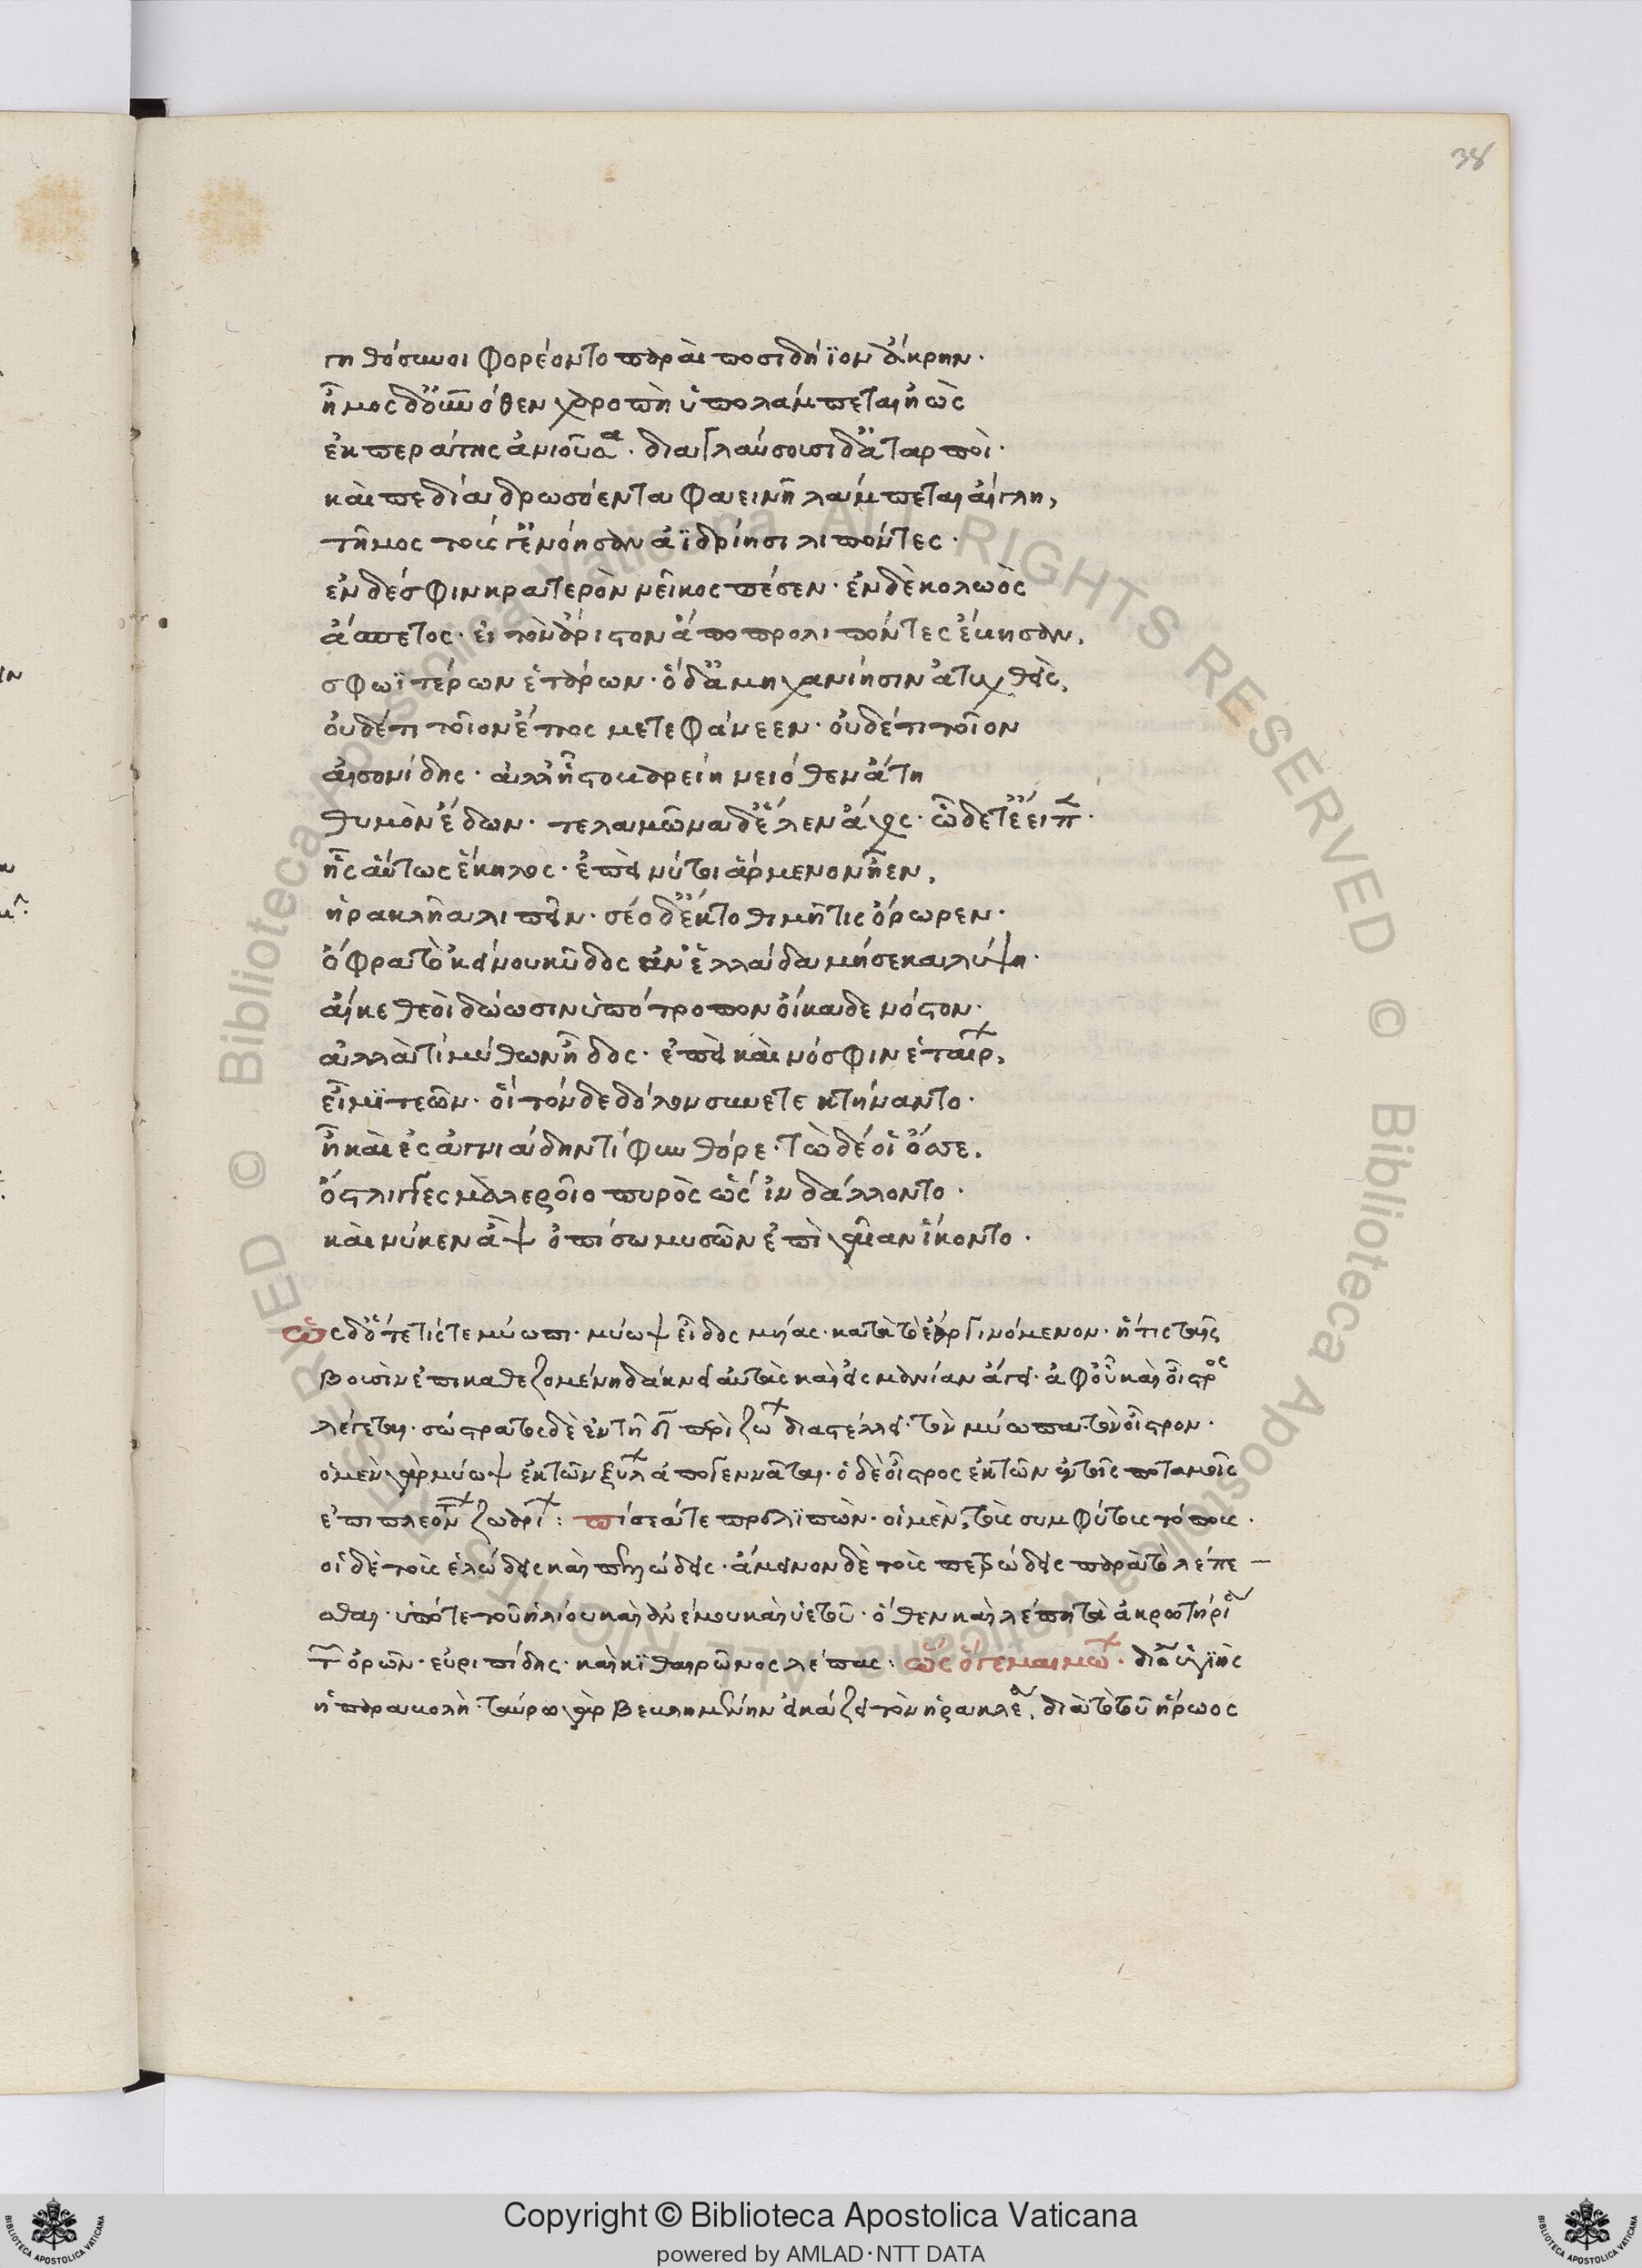 38
γηθόσυνοι φορέοντο παραὶ ποσιδήϊον ἄκρην·
ἦμος δ' οὐρανόθεν χαροπὴ ὑπολάμπεται ἠὼς
ἐκ περάτης ἀνιοῦσα· διαγλαύσουσι δ' ἀταρποί·
καὶ πεδία δρωσόεντα φαεινῆ λάμπεται αἴγλη,
τῆμος τούς γ' ἐνόησαν ἀϊδρίησι λιπόντες·
ἐν δέ σφιν κρατερὸν νεῖκος πέσεν· ἐν δὲ κολωὸς
ἄσπετος· εἰ τὸν ἄριστον ἀποπρολιπόντες ἔβησαν,
σφωϊτέρων ἑτάρων· ὁ δ' ἀμηχανίησιν ἀτυχθεὶς,
οὐδέ τι τοῖον ἔπος μετεφώνεεν· οὐδέ τι τοῖον
αἰσονίδης· ἀλλ' ἧστο βαρείη νειόθεν ἄτη
θυμὸν ἔδων· τελαμῶνα δ' ἕλεν χόλος· ὧδέ τ' ἔειπε·
ἧς αὕτως ἕκηλος· ἐπεὶ νύ τοι ἄρμενον ἦεν,
ἡρακλῆα λιπεῖν· σέο δ' ἔκτοθι μῆτις ὄρωρεν·
ὄφρα τὸ κείνου κῦδος ἀν' ἑλλάδα μή σε καλύψη·
αἴ κε θεοὶ δώωσιν ὑπότροπον οἴκαδε νόστον·
ἀλλὰ τί μύθων ἦδος· ἐπεὶ καὶ νόσφιν ἑταίρων,
εἶμι τεῶν· οἳ τόνδε δόλον συνετεκτήναντο·
ἦ καὶ ἐς ἁγνιάδην τίφυν θόρε· τὼ δέ οἱ ὄσσε,
ὄστλιγγες μαλεροῖο πυρὸς ὣς ἰνδάλλοντο·
καί νύ κεν ἂψ ὀπίσω μυσῶν ἐπὶ γαῖαν ἵκοντο·
ὡς δ' ὅτε τίς τε μύωπι· μύωψ εἶδος μυίας· κατὰ τὸ ἔαρ γινόμενον· ἥτις ταῖς
βουσὶν ἐπικαθεζομένη δάκνει αὐτὰς καὶ εἰς μανίαν ἄγει· ἀφ' οὗ καὶ οἶστρος
λέγεται· σώστρατος δὲ ἐν τῆ δ περὶ ζώων διαστέλλει· τὸν μύωπα· τὸν οἶστρον·
ὁ μὲν γὰρ μύωψ ἐκ τῶν ξύλων ἀπογεννᾶται· ὁ δὲ οἶστρος ἐκ τῶν ἐν τοῖς ποταμοῖς
ἐπιπλεόντων ζωαρίων: πίσεά τε προλιπὼν· οἱ μὲν, τοὺς συμφύτους τόπους·
οἱ δὲ τοὺς ἑλώδεις καὶ πηλώδεις· ἄμεινον δὲ τοὺς πετρώδεις παρὰ τὸ λέπε–
σθαι· ὑπό τε τοῦ ἡλίου καὶ ἀνέμου καὶ ὑετοῦ· ὅθεν καὶ λέπη τὰ ἀκρωτήρια
τῶν ὀρῶν· εὐριπίδης· καὶ κιθαιρῶνος λέπας: ὣς ὅγε μαιμώων· διὰ ὑγιὴς
ἡ παραβολή· ταύρω γὰρ βεβλημένην εἰκάζει τὸν ἡρακλέα, διὰ τὸ τοῦ ἥρωος
Copyright © Biblioteca Apostolica Vaticana
powered by AMLAD·NTT DATA